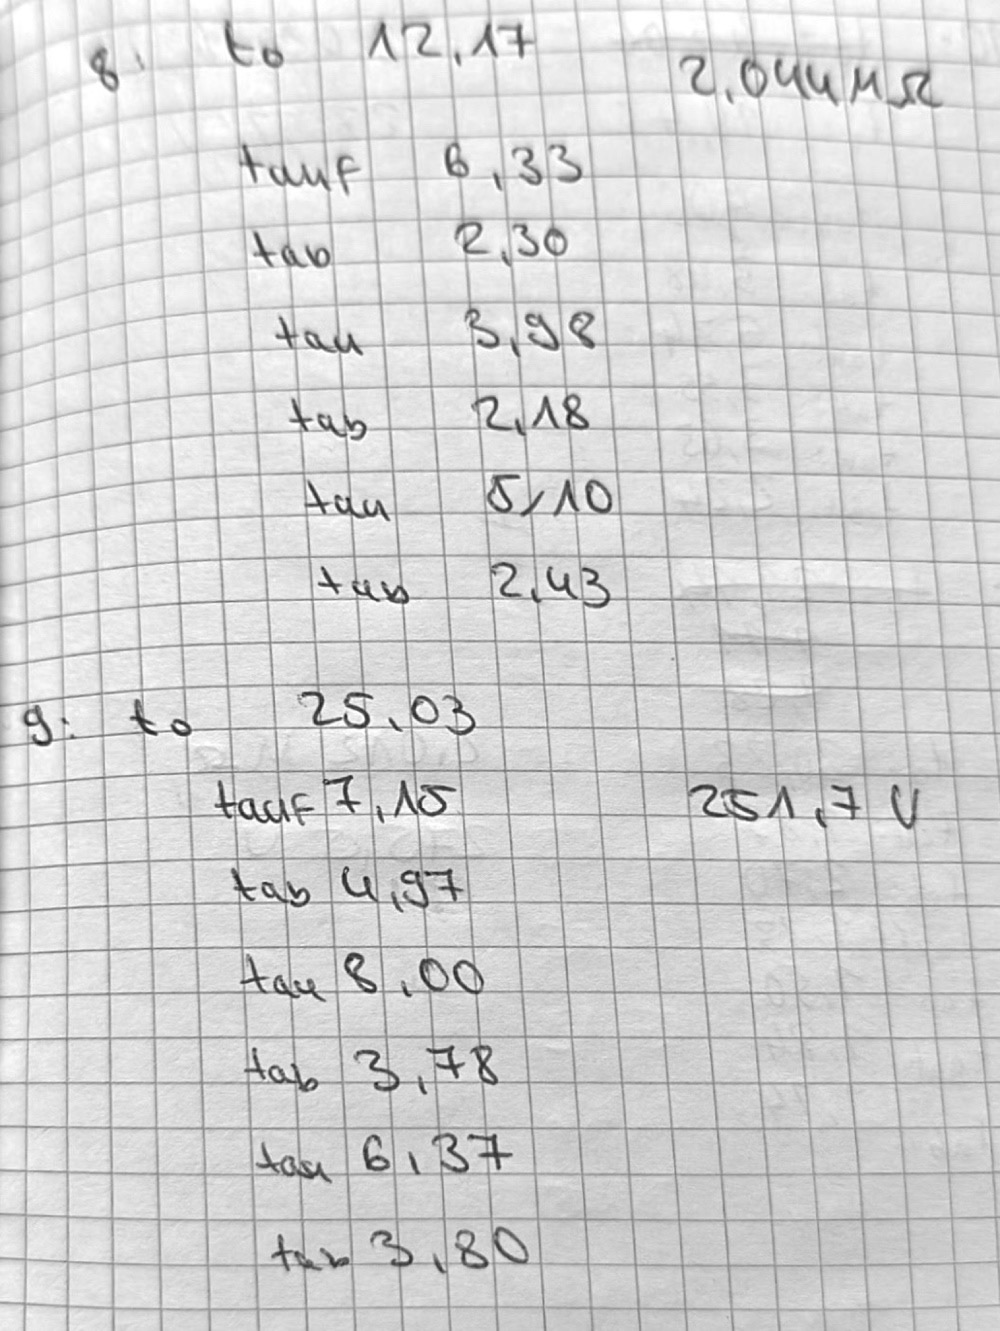 8: to 12,17 2,044 MΩ
tauf 6,33
tab 2,30
tau 3,98
tab 2,18
tau 5,10
tab 2,43
9: to 25,03
tauf 7,15 251,7 V
tab 4,97
tau 8,00
tab 3,78
tau 6,37
tab 3,80